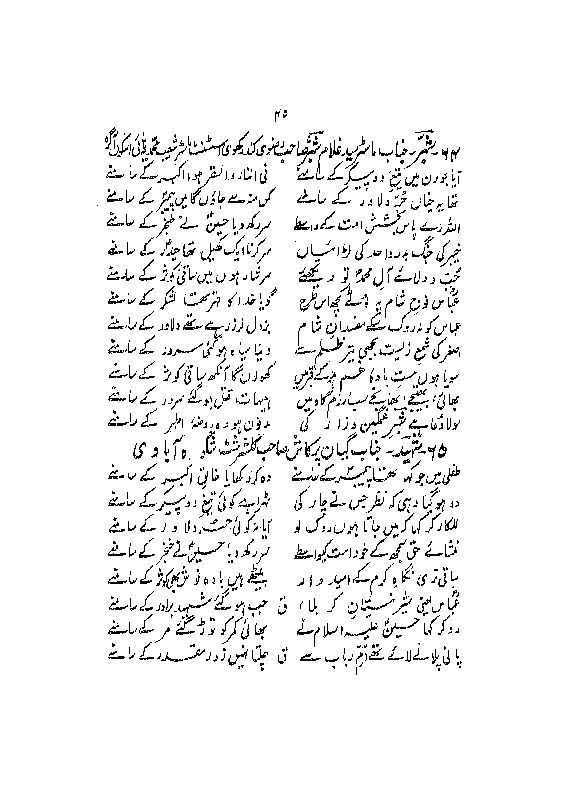 ۴۵
۶۴ شبّر۔ جناب ماسٹر سید غلام شبّر صاحب رضوی اسسٹنٹ ماسٹر شعیب محمدیہ ہائی اسکول آگرہ
آیا جو رن میں تیغ دو پیکر کے سامنے کے سامنے
تھا یہ خیال حرّ دلاور کے سامنے کس منہ سے جاؤں گا میں پیمبر کے سامنے
اللہ رے پاس بخشش امت کے واسطے سر رکھ دیا حسینؑ نے خنجر کے سامنے
خیبر کی جنگ بدر و احد کی لڑائیاں سر کرنا اک کھیل تھا حیدرؑ کے سامنے
محبّ و ولائے آل محمدؐ تو دیکھئے سرشار ہوں میں ساقی کوثر کے سامنے
عباسؑ فوج شام پہ کچھ اس طرح گویا خدا کا قہر تھا لشکر کے سامنے
عباس کو نہ روک سکے مفسدان شام بزدل لرز رہے تھے دلاور کے سامنے
اصغر کی شمع زیست بجھی تیر ظلم سے دنیا سیاہ ہو گئی سرور کے سامنے
سویا ہوں مست بادہ کے قبر میں کھولوں گا آنکھ ساقی کوثر کے سامنے
بھائی بھتیجے بھانجے سب رزم گاہ میں ہیہات قتل ہو گئے سرور کے سامنے
مولا دعا ہے شبّر غمگین و زار کی مدفون ہو وہ روضۂ اطہر کے سامنے
۶۵ جناب گیان پرکاش صاحب شکوہ آبادی
طفلی میں جو کہا تھا پیمبر کے سامنے وہ کر دکھایا خالق اکبر کے سامنے
دو ہو گیا وہی کہ نظر جس نے چار کی ٹھہرا ہے کوئی تیغ دو پیکر کے سامنے
للکار کر کہا کہ میں جاتا ہوں روک لو آیا نہ کوئی حرّ دلاور کے سامنے
منشائے حق سمجھ کے خود امت کے واسطے سر رکھ دیا حسینؑ نے خنجر کے سامنے
ساقی تری نگاہ کرم کے امیدوار بیٹھے ہیں بادہ نوش بھی کوثر کے سامنے
عباسؑ یعنی شیر نیستان کربلا ق جب ہو گئے شہید برادر کے سامنے
رو کر کہا حسین علیہ السلام نے بھائی کمر کو توڑ گئے مر کے سامنے
پانی پلانے لائے تھے ام رباب سے ق چلتا نہیں زور مقدر کے سامنے